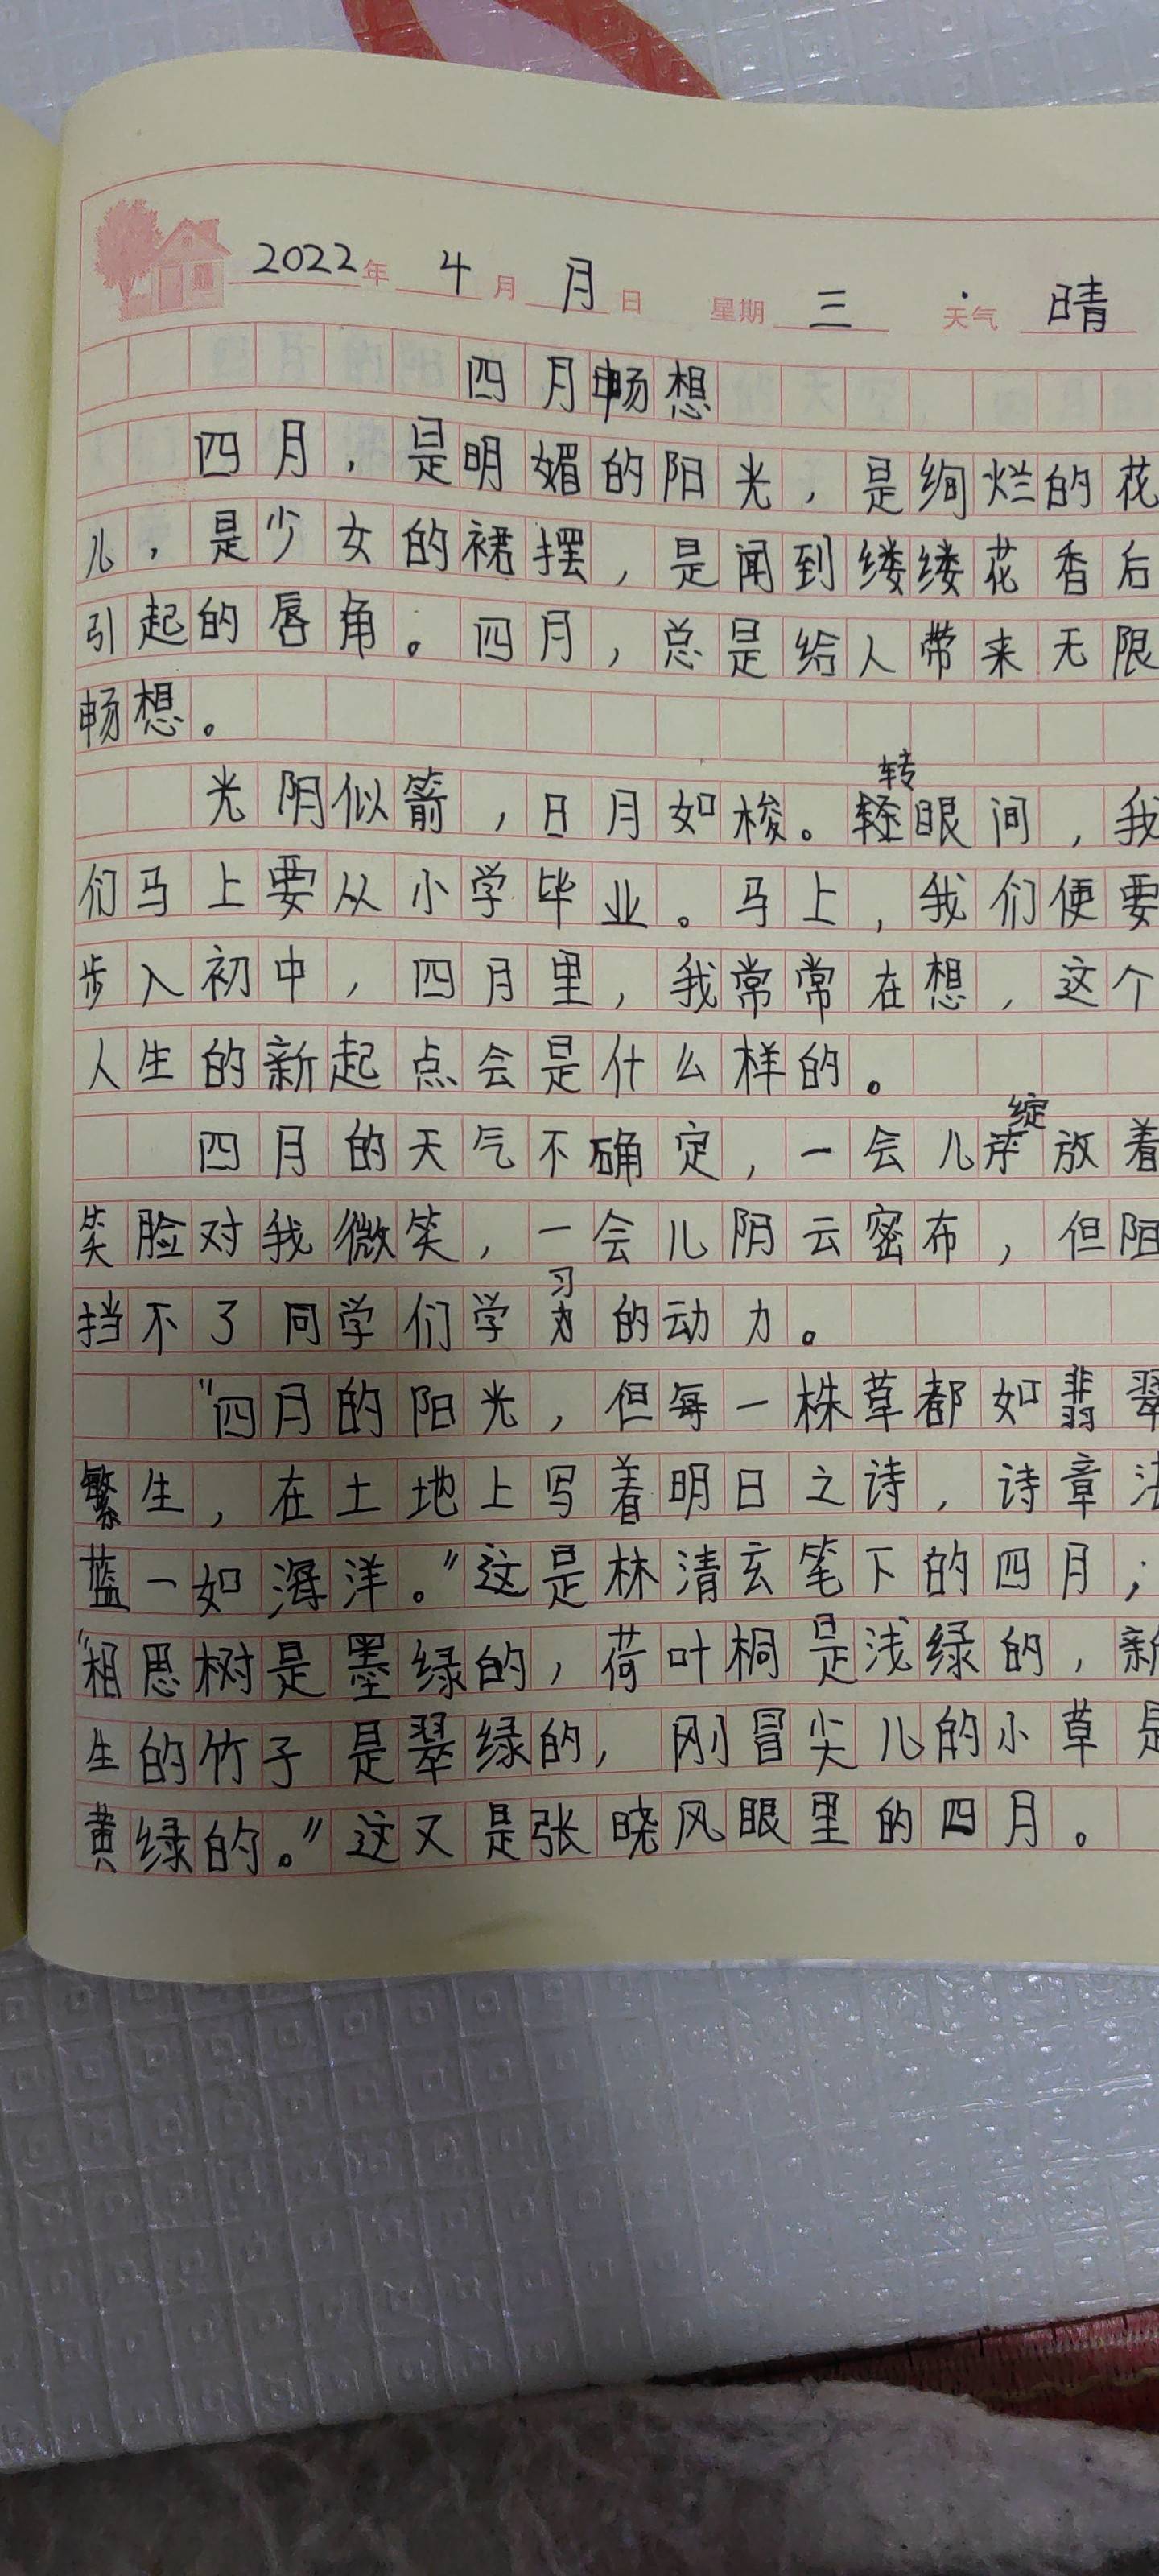 2022年 4月 月日 星期三 天气 晴
四月畅想
四月，是明媚的阳光，是绚烂的花
儿，是少女的裙摆，是闻到缕缕花香后
引起的唇角。四月，总是给人带来无限
畅想。
光阴似箭，日月如梭。转眼间，我
们马上要从小学毕业。马上，我们便要
步入初中，四月里，我常常在想，这个
人生的新起点会是什么样的。
四月的天气不确定，一会儿绽放着
笑脸对我微笑，一会儿阴云密布，但阻
挡不了同学们学习的动力。
"四月的阳光，但每一株草都如翡翠
繁生，在土地上写着明日之诗，诗章
蓝一如海洋。"这是林清玄笔下的四月；
"相思树是墨绿的，荷叶桐是浅绿的，新
生的竹子是翠绿的，刚冒尖儿的小草是
黄绿的。"这又是张晓风眼里的四月。